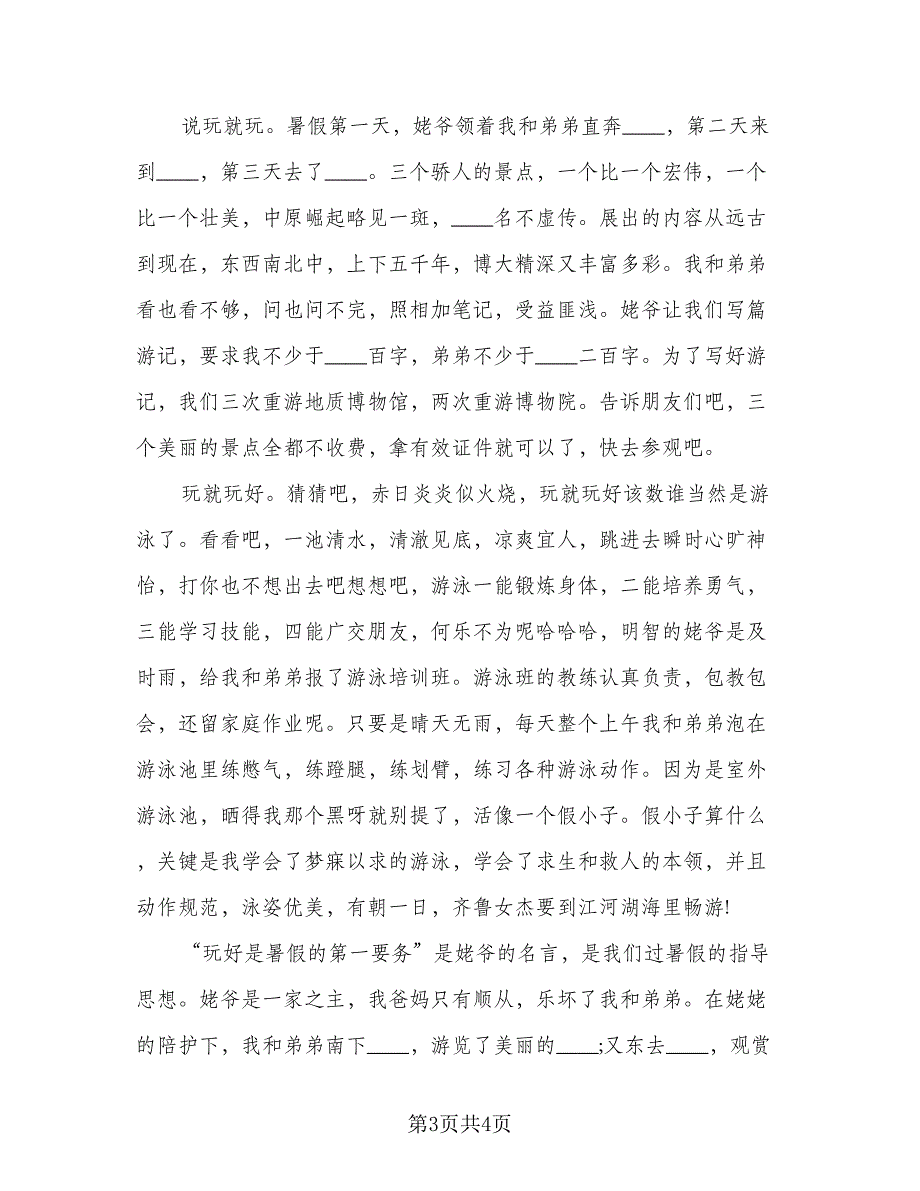 说玩就玩。暑假第一天，姥爷领着我和弟弟直奔____，第二天来
到____，第三天去了____。三个骄人的景点，一个比一个宏伟，一个
比一个壮美，中原崛起略见一斑，____名不虚传。展出的内容从远古
到现在，东西南北中，上下五千年，博大精深又丰富多彩。我和弟弟
看也看不够，问也问不完，照相加笔记，受益匪浅。姥爷让我们写篇
游记，要求我不少于____百字，弟弟不少于____二百字。为了写好游
记，我们三次重游地质博物馆，两次重游博物院。告诉朋友们吧，三
个美丽的景点全都不收费，拿有效证件就可以了，快去参观吧。
玩就玩好。猜猜吧，赤日炎炎似火烧，玩就玩好该数谁当然是游
泳了。看看吧，一池清水，清澈见底，凉爽宜人，跳进去瞬时心旷神
怡，打你也不想出去吧想想吧，游泳一能锻炼身体，二能培养勇气，
三能学习技能，四能广交朋友，何乐不为呢哈哈哈，明智的姥爷是及
时雨，给我和弟弟报了游泳培训班。游泳班的教练认真负责，包教包
会，还留家庭作业呢。只要是晴天无雨，每天整个上午我和弟弟泡在
游泳池里练憋气，练蹬腿，练划臂，练习各种游泳动作。因为是室外
游泳池，晒得我那个黑呀就别提了，活像一个假小子。假小子算什么
，关键是我学会了梦寐以求的游泳，学会了求生和救人的本领，并且
动作规范，泳姿优美，有朝一日，齐鲁女杰要到江河湖海里畅游!
“玩好是暑假的第一要务”是姥爷的名言，是我们过暑假的指导
思想。姥爷是一家之主，我爸妈只有顺从，乐坏了我和弟弟。在姥姥
的陪护下，我和弟弟南下____，游览了美丽的____;又东去____，观赏
第3页共4页